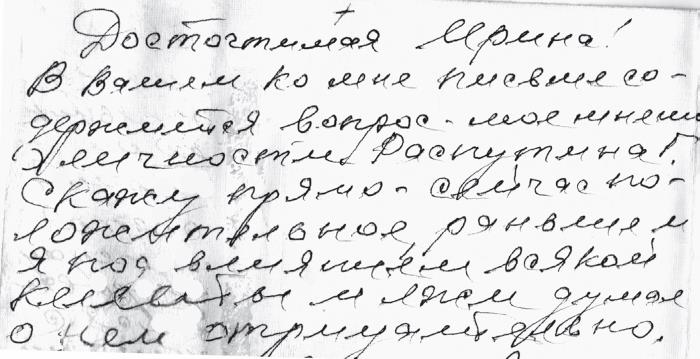 Досточтимая Ирина!
В Вашем ко мне письме со-
держится вопрос - мое мнение
о личности Распутина Г.
Скажу прямо - сейчас по-
ложительное, раньше
я под влиянием всякой
клеветы и лжи думал
о нем отрицательно.